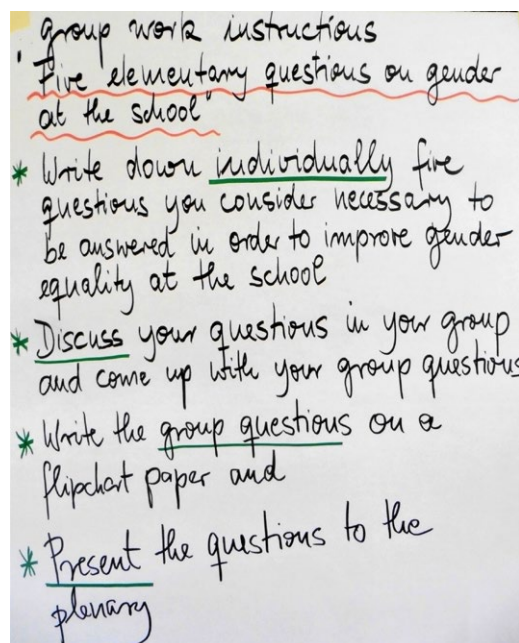 group work instructions
"Five elementary questions on gender
at the school"
* Write down individually five
questions you consider necessary to
be answered in order to improve gender
equality at the school
* Discuss your questions in your group
and come up with your group questions
* Write the group questions on a
flipchart paper and
* Present the questions to the
plenary